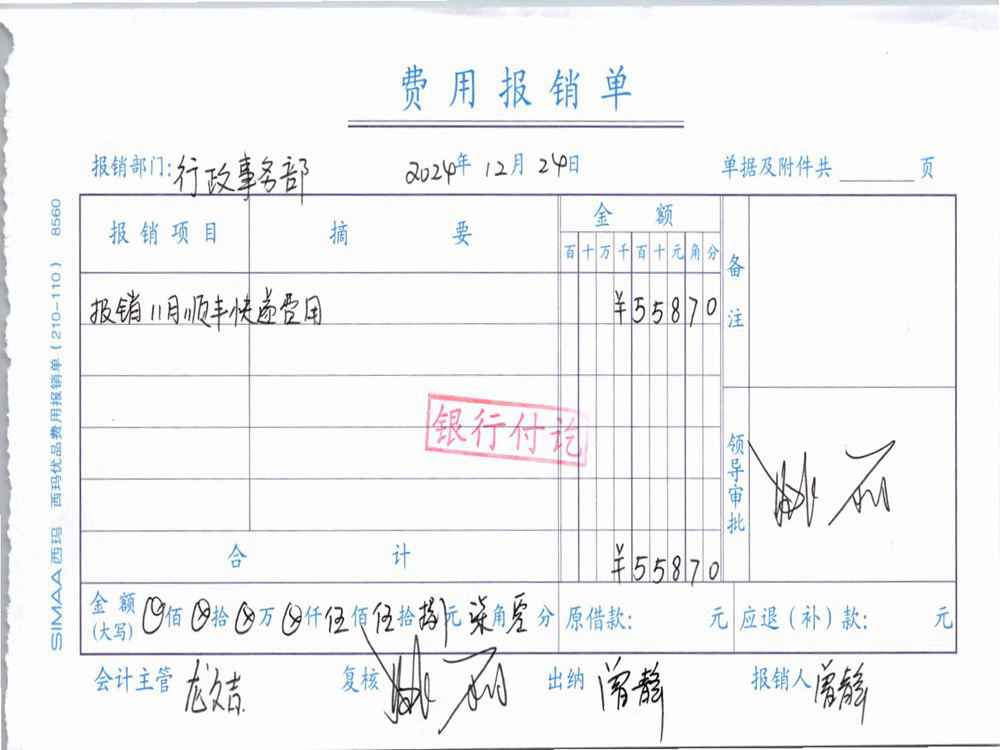 费用报销单
报销部门: 行政事务部 2024年 12月 24日 单据及附件共 页
报销项目 摘要 金额 备注
百十万千百十元角分
报销11月顺丰快递费用 ¥55870
银行付讫
领导审批
合计 ¥55870
金额(大写) 佰 拾 万 仟 伍佰 伍拾 捌元 柒角 零分 原借款: 元 应退(补)款: 元
会计主管 龙文吉 复核 出纳 曾静 报销人 曾静
SIMAA西玛 西玛优品费用报销单(210-110) 8560